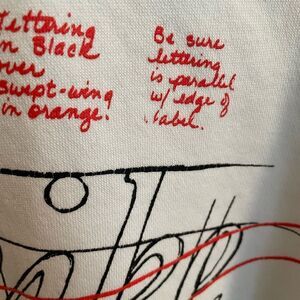 Lettering
in Black
over
swept-wing
in orange.
Be sure
lettering
is parallel
w/ edge of
label.